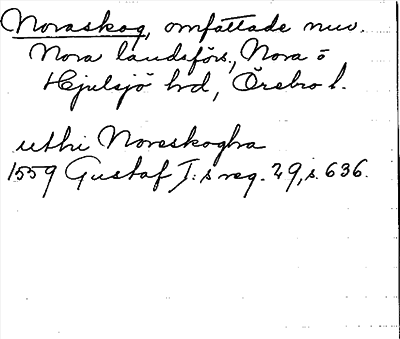 Noraskog, omfattade nuv.
Nora landsförs., Nora o
Hjulsjö hd, Örebro l.
uthi Noreskogha
1559 Gustaf I:s reg. 29, s. 636.